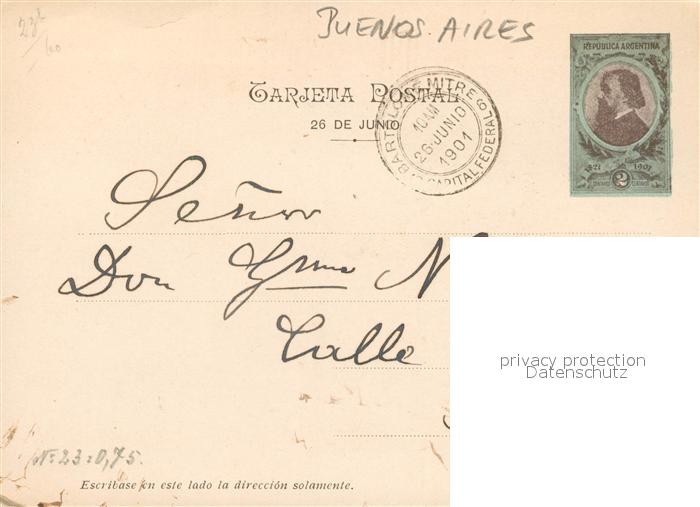 BUENOS AIRES
REPÚBLICA ARGENTINA
TARJETA POSTAL
26 DE JUNIO
BARTOLOMÉ MITRE
10 AM
26·JUNIO
1901
CAPITAL FEDERAL
1821 1901
2
Señor
Don Gmo N
Calle
privacy protection
Datenschutz
Nº 23 : 0,75.
Escríbase en este lado la dirección solamente.